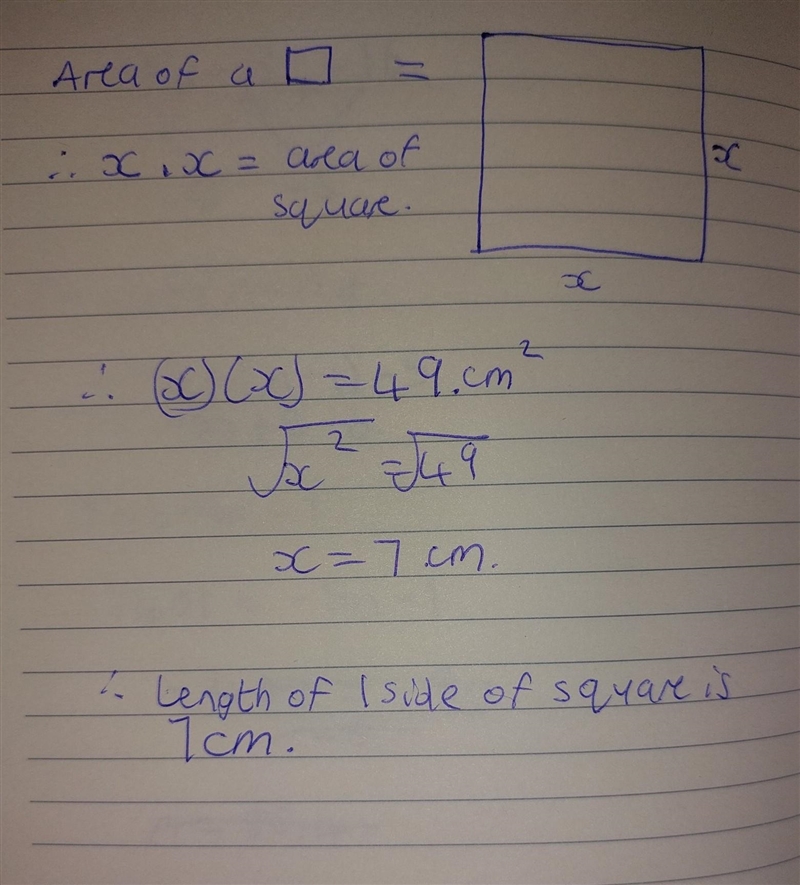 Area of a □ =
x
∴ x . x = area of
square.
x
∴ (x)(x) = 49.cm²
√x² = √49
x = 7 cm.
∴ Length of 1 side of square is
7cm.